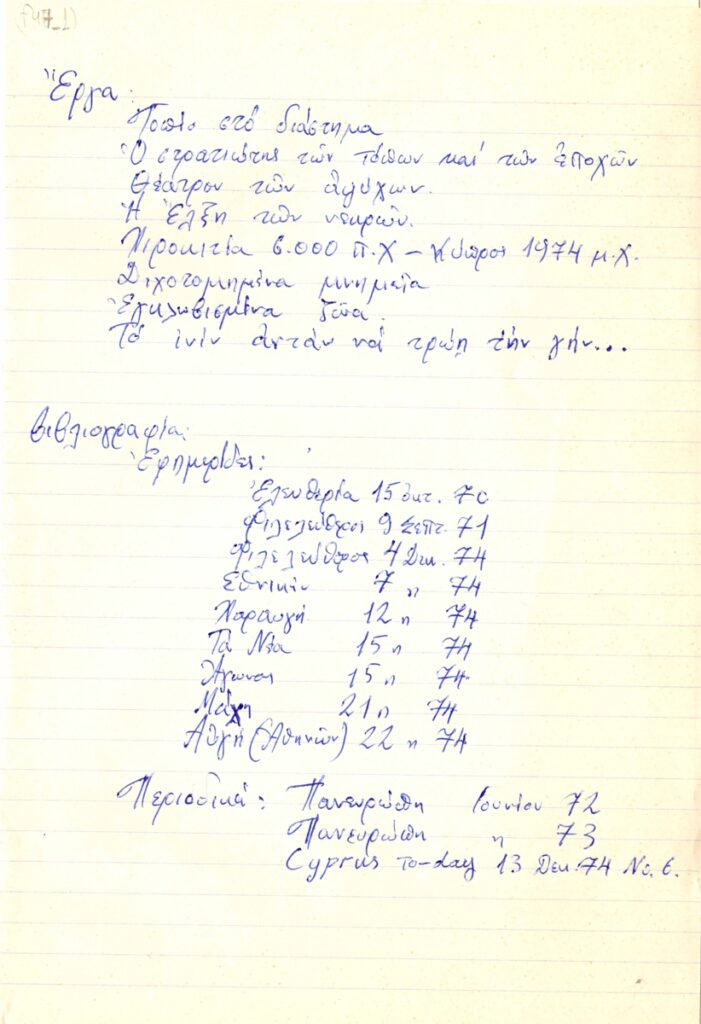 (f47_1)
Ἔργα:
Τοπίο στό διάστημα
Ὁ στρατιώτης τῶν τόπων καί τῶν ἐποχῶν
Θέατρον τῶν ἀψύχων.
Ἡ Ἕλξη τῶν νεκρῶν.
Χιροκιτία 6.000 π.Χ – Κύπρος 1974 μ.χ.
Διχοτομημένα μνημεῖα
Ἐγκλωβισμένα ζῶα.
Τό ἰνίν ἀντάν νά τρώη τήν γήν...
Βιβλιογραφία:
Ἐφημερίδες:
Ἐλευθερία 15 Ὀκτ. 70
Φιλελεύθερος 9 Σεπτ. 71
Φιλελεύθερος 4 Δεκ. 74
Ἐθνική 7 " 74
Χαραυγή 12 " 74
Τά Νέα 15 " 74
Ἀγώνας 15 " 74
Μάχη 21 " 74
Αὐγή (Ἀθηνῶν) 22 " 74
Περιοδικά: Πανευρώπη Ιουνίου 72
Πανευρώπη " 73
Cyprus to-day 13 Δεκ. 74 No. 6.